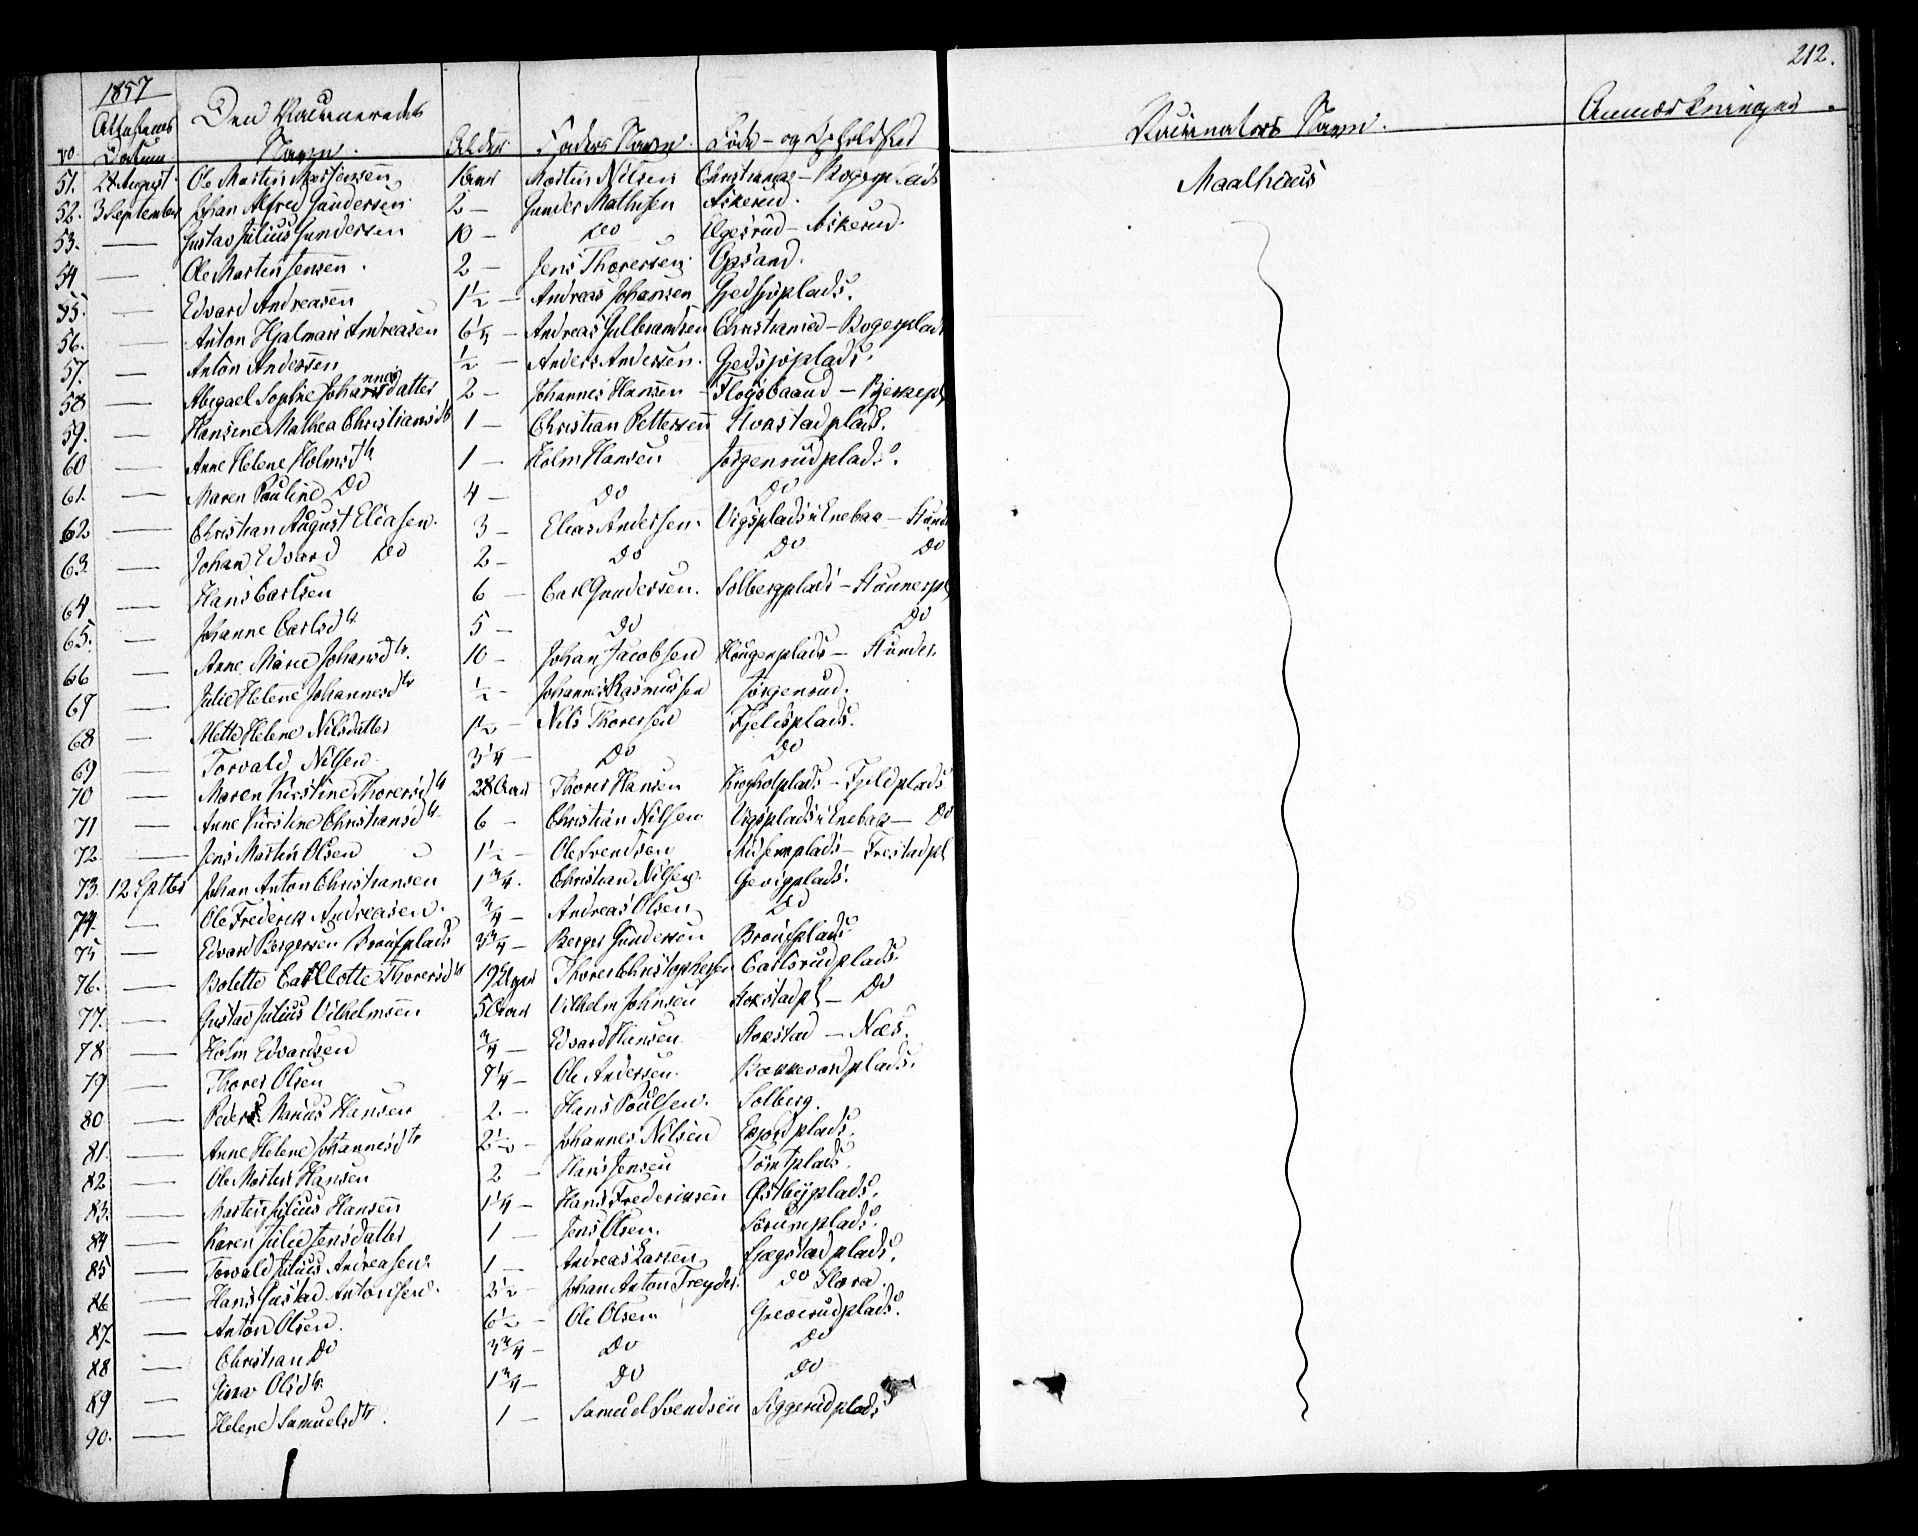 212.
1857
Attestens Datum
No
Den Vaccineredes Navn.
Alder
Faders Navn.
Føde- og Opholdsted
Vaccinators Navn.
Anmærkninger.
51. 28 August. Ole Martin Mortensen 1 Aar Morten Nilsen Christiania - Bogerplads Maalhuus
52. 3 September Johan Alfred Gundersen. 2 - Gunder Mathisen Askerud.
53. — Gustav Julius Gundersen 10 - Do Elgesrud - Askerud.
54 — Ole Martin Jensen. 2 - Jens Thoresen. Opsand.
55. — Edvard Andreasen 1½ - Andreas Johansen Gjedsjøplads.
56. — Anton Hjalmar Andreasen 6¼ - Andreas Gulbrandsen Christiania - Bogerplads
57. — Anton Andersen ½ - Anders Andersen. Gjedsjøplads.
58 — Abigael Sophie Johannesdatter 2 - Johannes Hansen - Flogsbaand - Bjerkepl
59. — Hansine Mathea Christiansdtr 1 - Christian Pettersen Hvastadplads.
60 — Anne Helene Holmsdtr 1 - Holm Hansen Jørgensrudplads.
61. — Maren Pauline Do 4 - Do Do
62 — Christian August Eliasen. 3 - Elias Andersen. Vigsplads i Enebak -
63. — Johan Edvard Do 2 - Do Do Do
64 — Hans Carlsen 6 - Carl Gundersen. Solbergplads - Stunnerpl
65. — Johanne Carlsdtr 5 - Do Do
66 — Anne Marie Johansdtr. 10 - Johan Jacobsen Haugerplads -
67 — Julie Helene Johannesdtr ½ - Johannes Rasmussen Jørgensrud.
68 — Mette Helene Nilsdatter 1½ - Nils Thoresen Fjelsplads.
69 — Torvald Nilsen 3¼ - Do Do
70 — Maren Kirstine Thoresdtr 28 Aar Thores Hansen Krogholplads - Fjeldplads
71 — Anne Kirstine Christiansdtr. 6 - Christian Nilsen Vigsplads i Enebak - Do
72 — Jens Martin Olsen 1½ - Ole Svendsen Midsemplads - Frestadpl
73. 12. Septbr Johan Anton Christiansen 1¾. Christian Nilsen. Gjevigplads.
74. — Ole Frederik Andreasen. ¾ - Andreas Olsen Do
75 — Edvard Bergersen Brousplads 3¾ - Berger Gundersen Brousplads
76. — Bolette Carllotte Thoresdtr 19 Uger Thores Christophersen Carlsrudplads.
77. — Gustav Julius Vilhelmsen 5 Aar Vilhelm Johnsen Stokstadpl - Do
78 — Holm Edvardsen ¾ - Edvard Hansen Stokstad - Næs.
79. — Thores Olsen 7¼ - Ole Andersen. Bakkevandplads.
80 — Peder Marius Hansen 2. - Hans Poulsen. Solberg.
81. — Anne Helene Johannesdtr 2½ - Johannes Nilsen Enjordplads.
82 — Ole Martin Hansen 2 - Hans Jensen Tomtplads.
83. — Martin Julius Hansen 1¼ - Hans Frederiksen Østbyplads.
84 — Karen Julie Jensdatter 1 - Jens Olsen. Sørumplads.
85 — Torvald Julius Andreasen. 1 - Andreas Larsen Sjægstadplads.
86 — Hans Gustav Antonsen. 2½ - Johan Anton Treyder. Do Skara.
87. — Anton Olsen. 6½ - Ole Olsen Greverudplads.
88 — Christian Do 3¾ - Do Do
89 — Olsdtr. 1¾ - Do Do
90. — Helene Samuelsdtr. 1 - Samuel Svendsen Siggerudplads